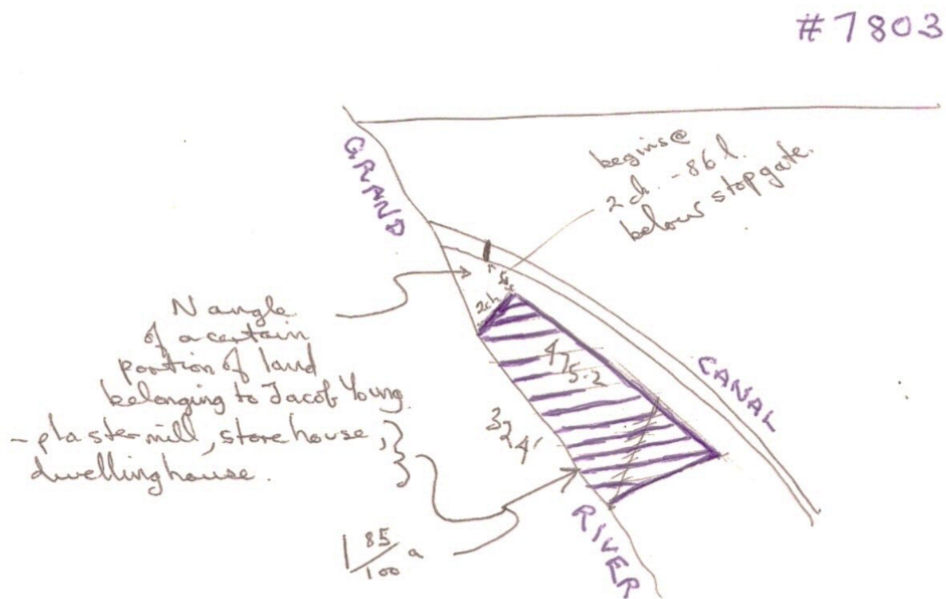 #7803
GRAND
begins @
2 ch. - 86 l.
below stopgate.
2ch
N angle
of a certain
portion of land
belonging to Jacob Young.
- plaster mill, store house,
dwelling house.
475.2
CANAL
324'
1 85/100 a
RIVER